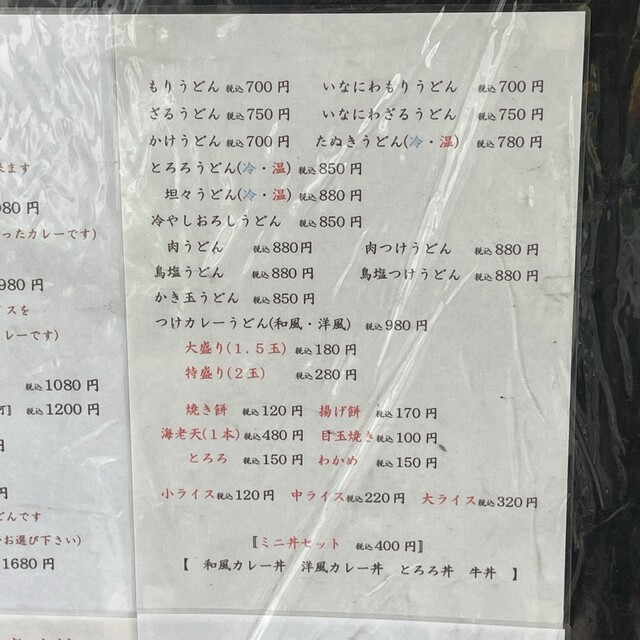 来ます
980 円
ったカレーです)
980 円
イスを
レーです)
税込 1080 円
税込 1200 円
円
円
どんです
お選び下さい)
1680 円
もりうどん 税込 700 円 いなにわもりうどん 税込 700 円
ざるうどん 税込 750 円 いなにわざるうどん 税込 750 円
かけうどん 税込 700 円 たぬきうどん(冷・温) 税込 780 円
とろろうどん(冷・温) 税込 850 円
坦々うどん(冷・温) 税込 880 円
冷やしおろしうどん 税込 850 円
肉うどん 税込 880 円 肉つけうどん 税込 880 円
鳥塩うどん 税込 880 円 鳥塩つけうどん 税込 880 円
かき玉うどん 税込 850 円
つけカレーうどん(和風・洋風) 税込 980 円
大盛り(1.5玉) 税込 180 円
特盛り(2玉) 税込 280 円
焼き餅 税込 120 円 揚げ餅 税込 170 円
海老天(1本) 税込 480 円 目玉焼き 税込 100 円
とろろ 税込 150 円 わかめ 税込 150 円
小ライス 税込 120 円 中ライス 税込 220 円 大ライス 税込 320 円
〚ミニ丼セット 税込 400 円〛
【 和風カレー丼 洋風カレー丼 とろろ丼 牛丼 】